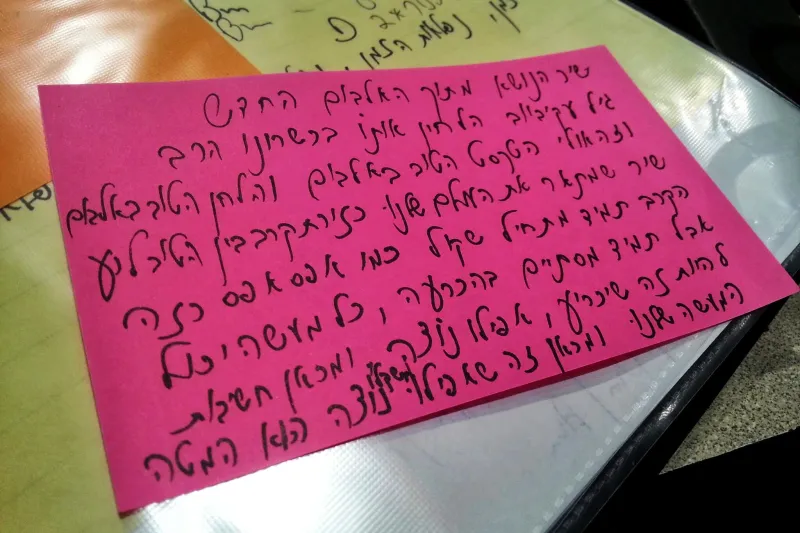 שיר הנושא מתוך האלבום החדש
גיל עקיביוב הלחין אותו בכשרונו הרב
וזה אולי הטקסט הטוב באלבום והלחן הטוב באלבום
שיר שמתאר את העולם שלנו כזירת קרב בין הטוב לרע
הקרב תמיד מתחיל שקול כמו אפס אפס כזה
אבל תמיד מסתיים בהכרעה, וכל מעשה יכול
להיות זה שיכריע, אפילו נוצה, ומכאן חשיבות
המעשה שלנו. ומכאן זה שאפילו נוצה היא המטה